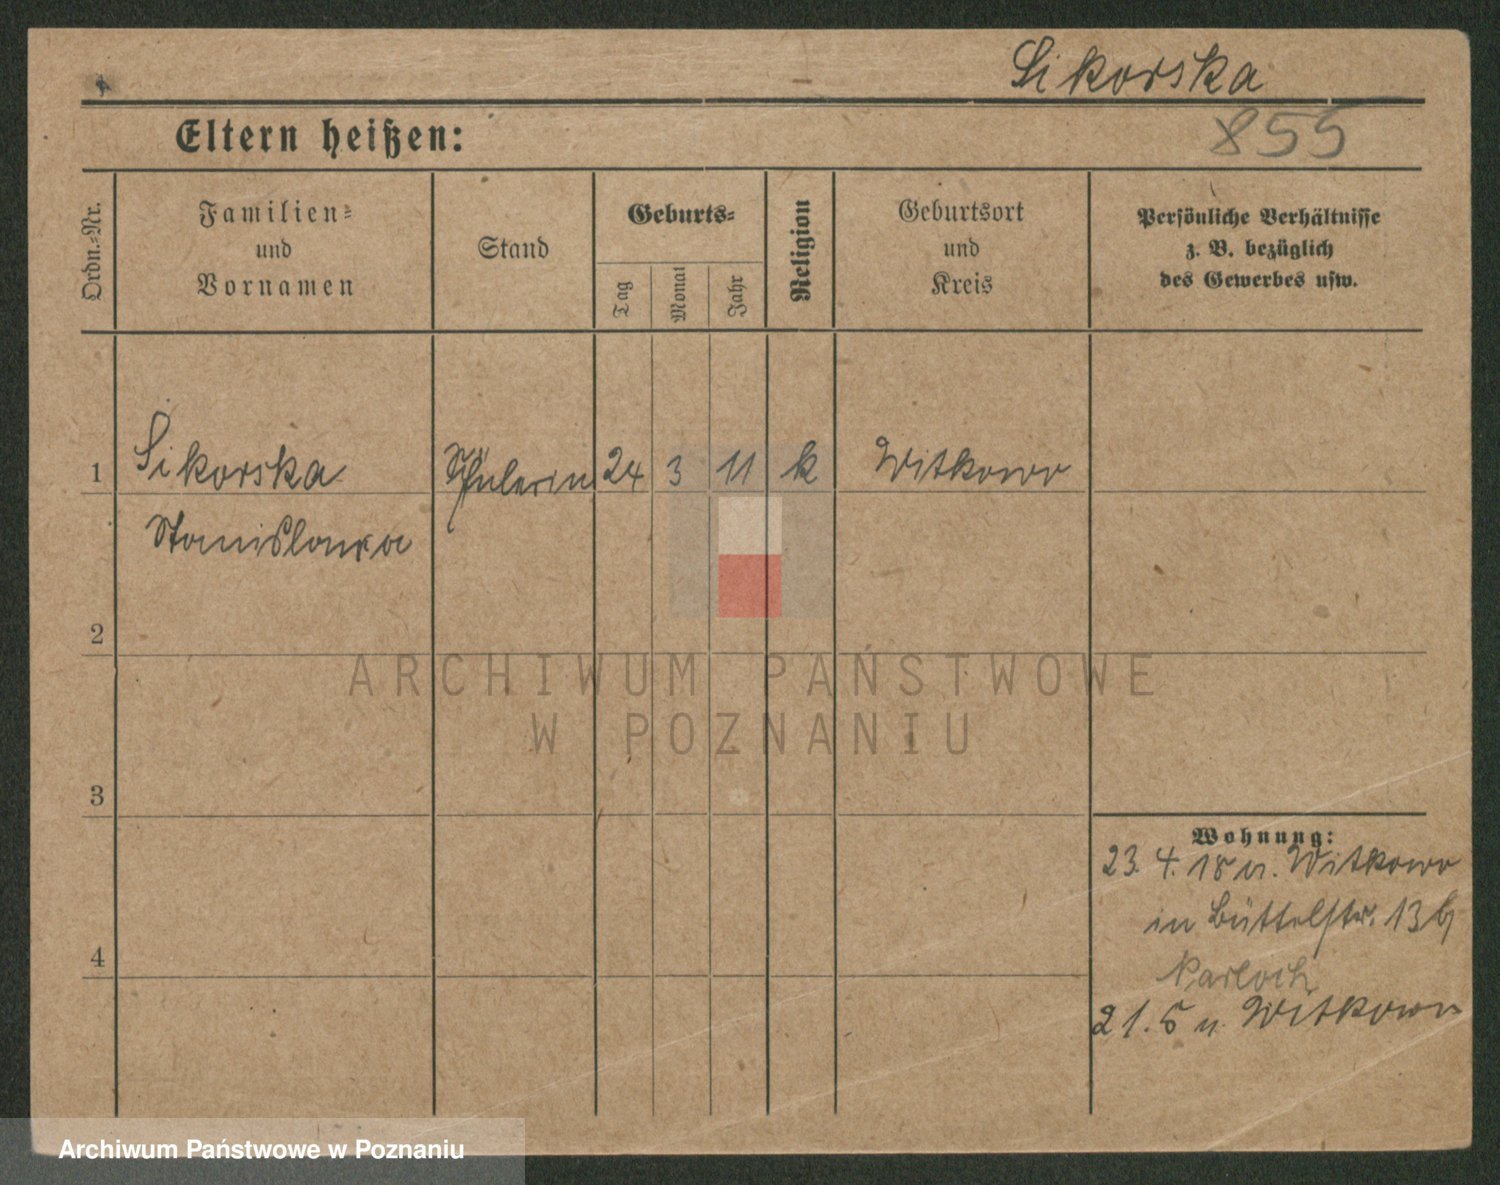 Sikorska
Eltern heißen:
855
Ordn.-Nr.
Familien-
und
Vornamen
Stand
Geburts-
Tag
Monat
Jahr
Religion
Geburtsort
und
Kreis
Persönliche Verhältnisse
z. B. bezüglich
des Gewerbes usw.
1 Sikorska Schülerin 24 3 11 k Witkowo
Stanislawa
2
ARCHIWUM PAŃSTWOWE
W POZNANIU
3
Wohnung:
23. 4. 18 v. Witkowo
in Büttelstr. 13 b
4
21. 5 n. Witkowo
Archiwum Państwowe w Poznaniu